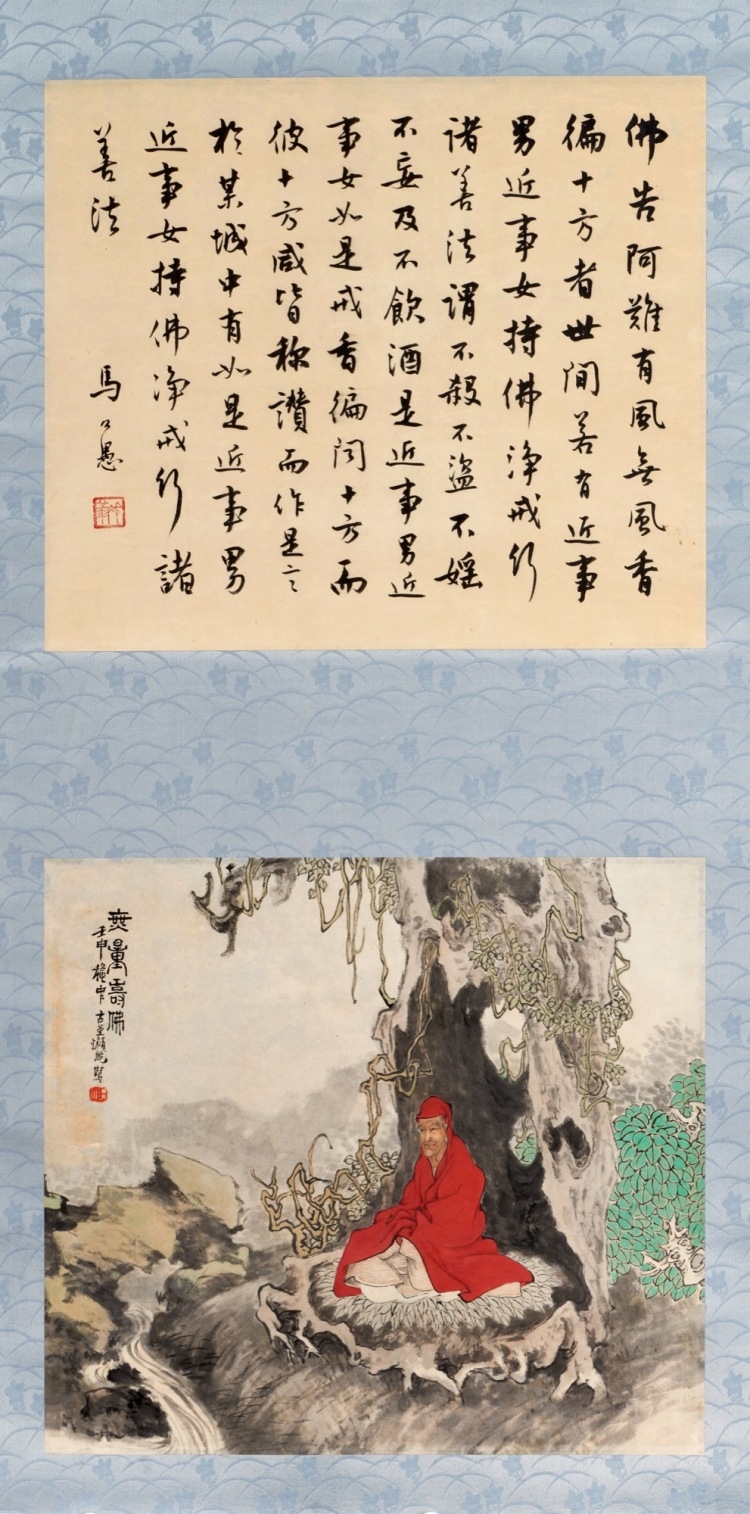 佛告阿難有風無風香
徧十方者世間若有近事
男近事女持佛淨戒行
諸善法謂不殺不盜不婬
不妄及不飲酒是近事男近
事女如是戒香徧聞十方而
彼十方咸皆称讚而作是言
於某城中有如是近事男
近事女持佛淨戒行諸
善法
馬公愚
無量壽佛
壬申